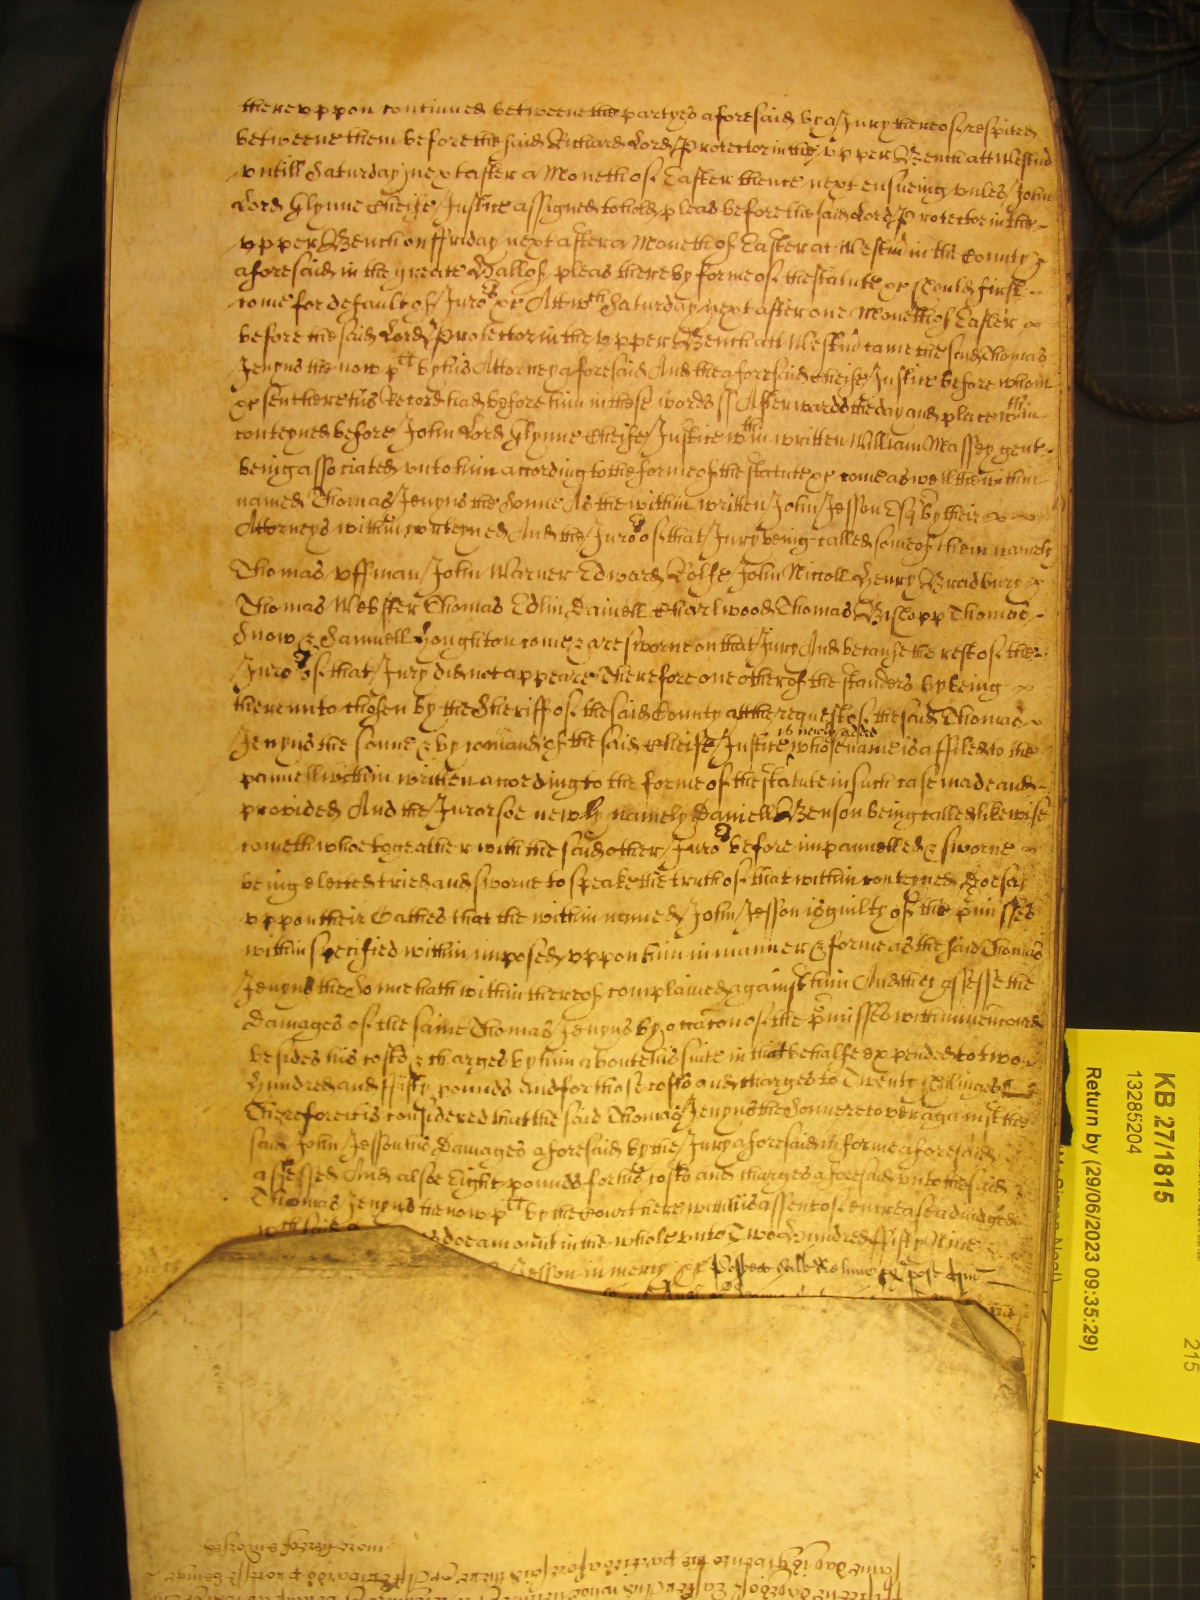 thereuppon continued betweene the partyes aforesaid by a Jury thereof respited
betweene them before the said Richard Lord Protector in the upper Bench att Westm
untill Saturday next after a Moneth of Easter thence next ensueing unles John
Lord Glynne Cheife Justice assigned to hold pleas before the said Lord Protector in the
upper Bench on ffriday next after a Moneth of Easter at Westm in the County
aforesaid in the greate Hall of pleas there by forme of the statute &c should first
come for default of Juro &c Att wch Saturday next after one Moneth of Easter
before the said Lord Protector in the upper Bench att Westm came the said Thomas
Jenyns the now plt by his Attorney aforesaid And the aforesaid Cheife Justice before whom
&c sent here his Record had before him in these words ss Afterwards the day and place wthin
conteyned before John Lord Glynne Cheife Justice wthin written William Massey gent
being associated unto him according to the forme of the statute &c come as well the within
named Thomas Jenyns the sonne As the within written John Jesson Esq by their
Attorneys within conteyned And the Juro of that Jury being called some of them namely
Thomas Uffman John Warner Edward Rolfe John Nicoll Henry Bradbury
Thomas Webster Thomas Edlin Daniell Charlwood Thomas Bishopp Thomas
Snow & Samuell Houghton come & are sworne on that Jury And because the rest of the
Juro of that Jury did not appeare Therefore one other of the standers by being
thereunto chosen by the Sheriff of the said County att the request of the said Thomas
Jenyns the sonne & by comand of the said Cheife Justice is newly added whose name is affiled to the
pannell within written according to the forme of the statute in such case made and
provided And the Juror soe newly namely Daniell Benson being called likewise
cometh whoe togeather with the said other Juro before impannelled & sworne
being elected tried and sworne to speake the truth of that within conteyned Doe say
uppon their Oathes that the within named John Jesson is guilty of the pmisses
within specified within imposed uppon him in manner & forme as the said Thomas
Jenyns the Sonne hath within thereof complained against him And they assesse the
Damages of the same Thomas Jenyns by occacon of the pmisses within mencoed
besides his costs & charges by him about his suite in that behalfe expended to two
Hundred and ffifty pounds And for those costs and charges to Twenty shillinges
Therefore it is considered that the said Thomas Jenyns the Sonne recover against the
said John Jesson his Damages aforesaid by the Jury aforesaid in forme aforesaid
assessed And alsoe Eight pounds for his costs and charges aforesaid unto the said
Thomas Jenyns the now plt by the Court here with his assent of encrease adiudged
wch said doe amount in the whole unto Two Hundred ffifty Nine
Jesson in mercy &c
KB 27/1815
13285204
Return by (29/06/2023 09:35:29)
215